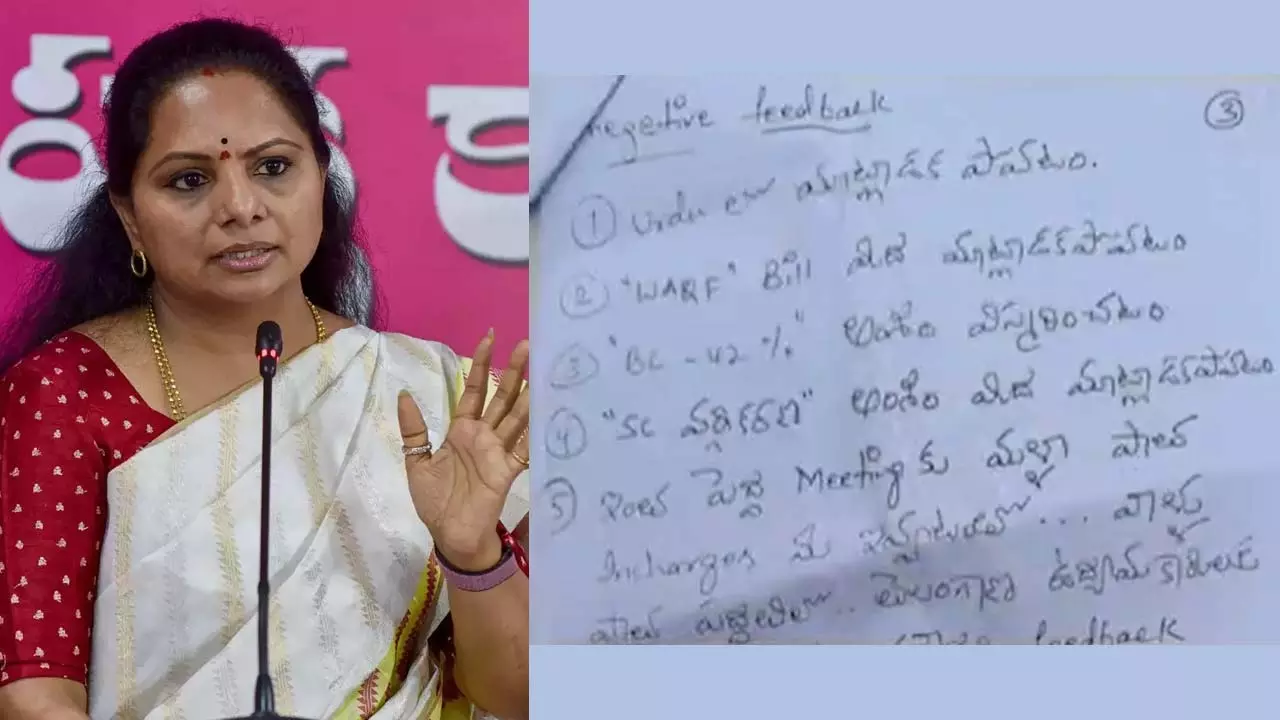 negative feedback
③
① Urdu లో మాట్లాడక పోవటం.
② "WAQF" Bill మీద మాట్లాడకపోవటం
③ "BC - 42 %" అంశం విస్మరించటం
④ "SC వర్గీకరణ" అంశం మీద మాట్లాడకపోవటం
⑤ ఇంత పెద్ద Meeting కు మళ్ళా పాత
Incharges ను ఇన్వాల్
పాత తెలంగాణా ఉద్యమకారులకు
feedback